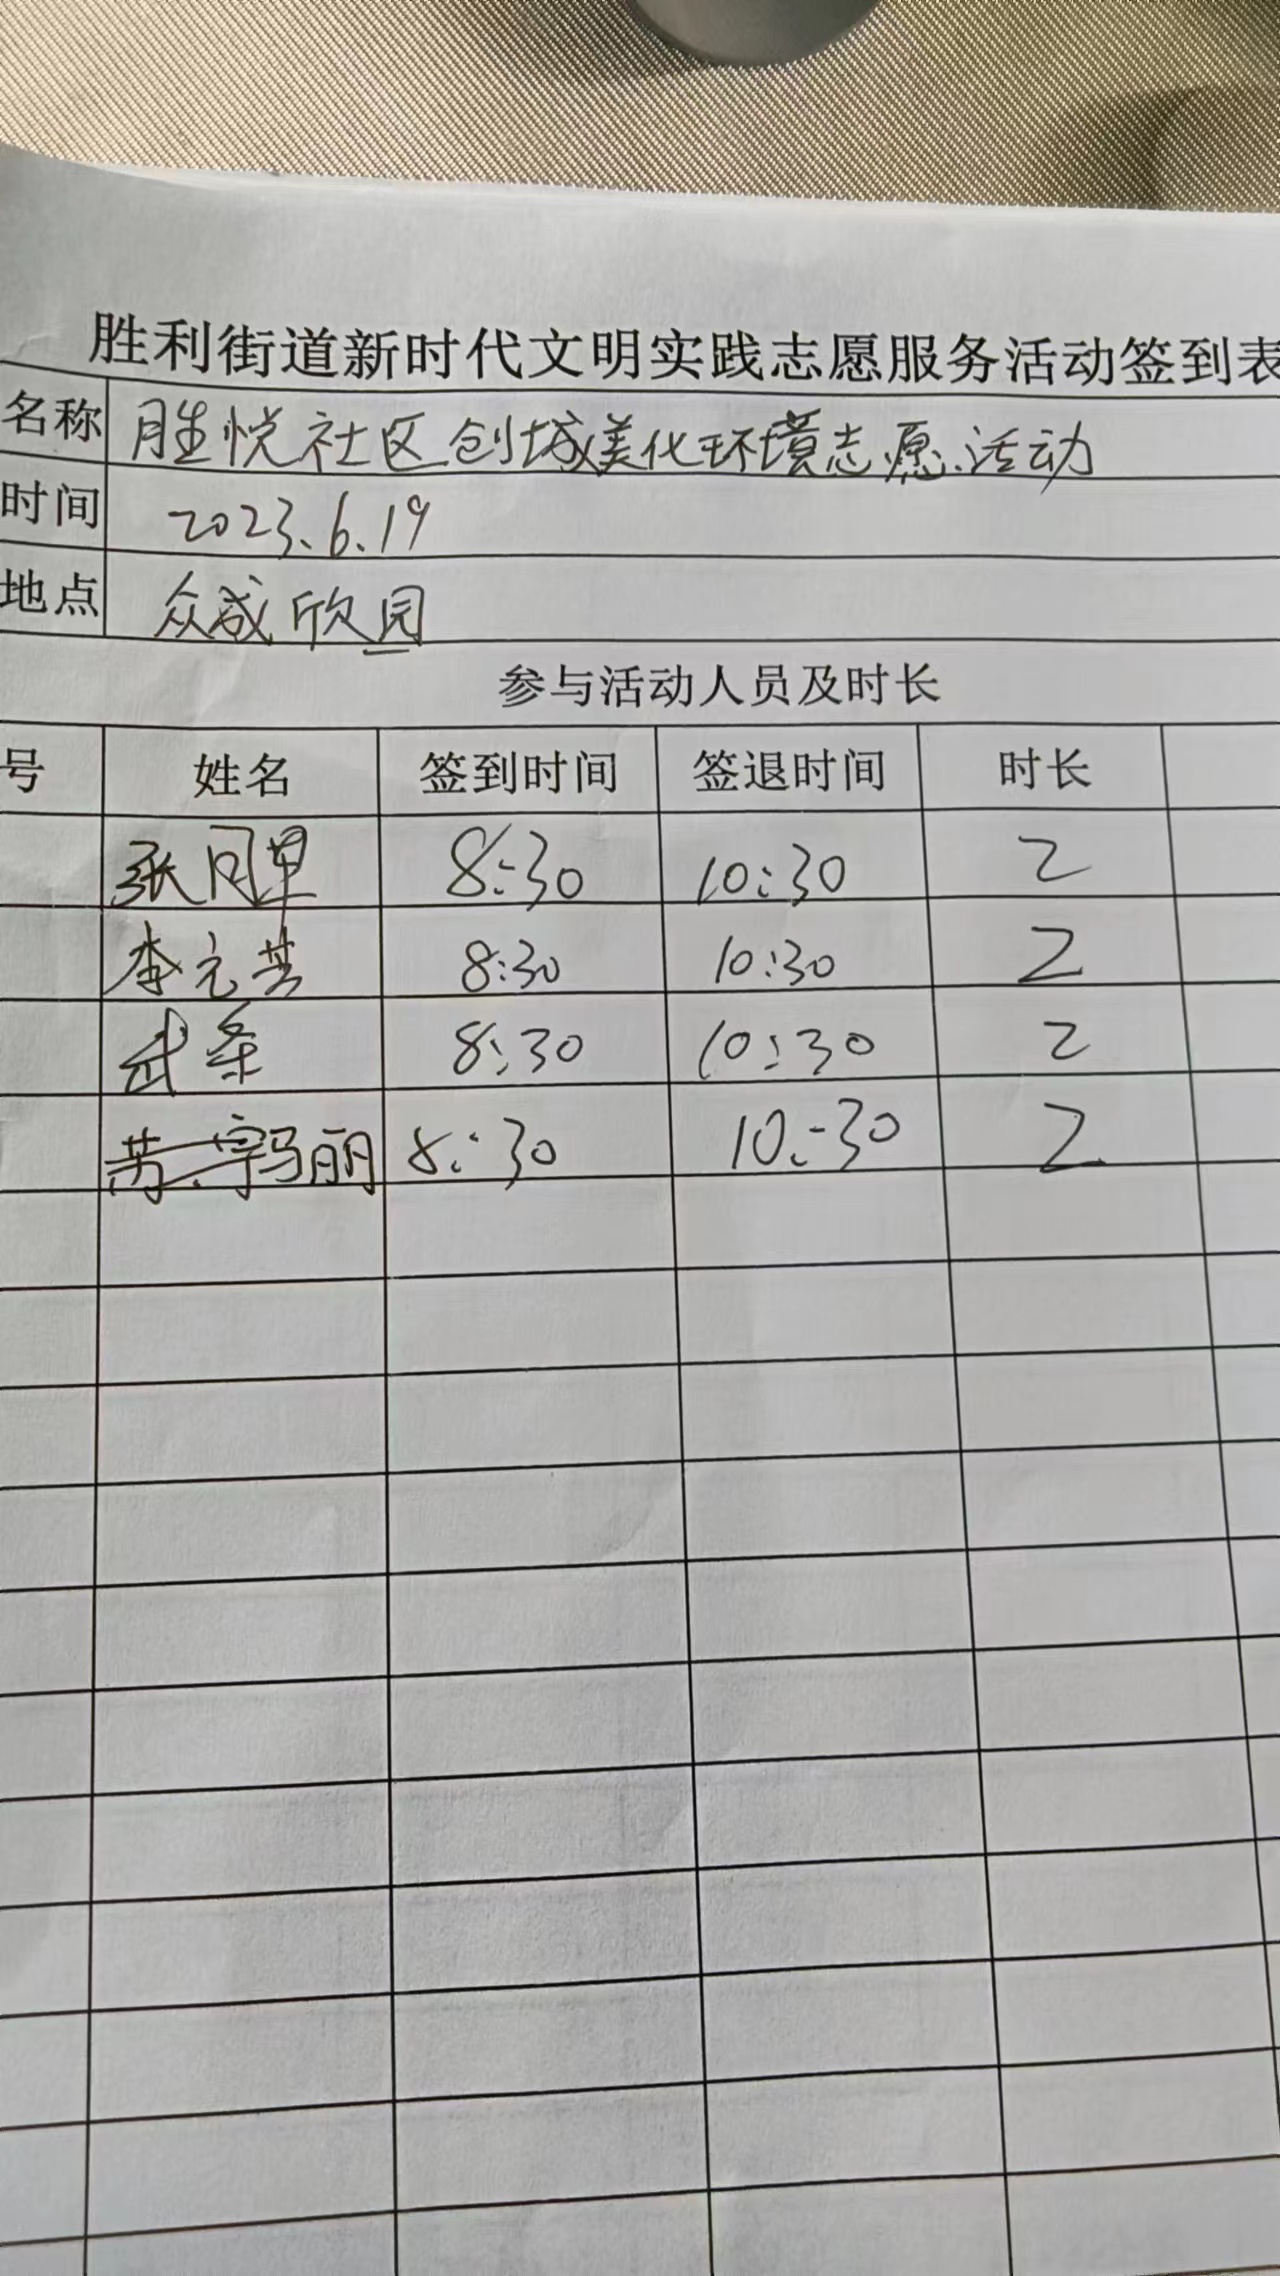 胜利街道新时代文明实践志愿服务活动签到表
名称 胜悦社区创城美化环境志愿活动
时间 2023.6.19
地点 众成欣园
参与活动人员及时长
号 姓名 签到时间 签退时间 时长
张 8:30 10:30 2
李元芸 8:30 10:30 2
武条 8:30 10:30 2
丽 8:30 10:30 2